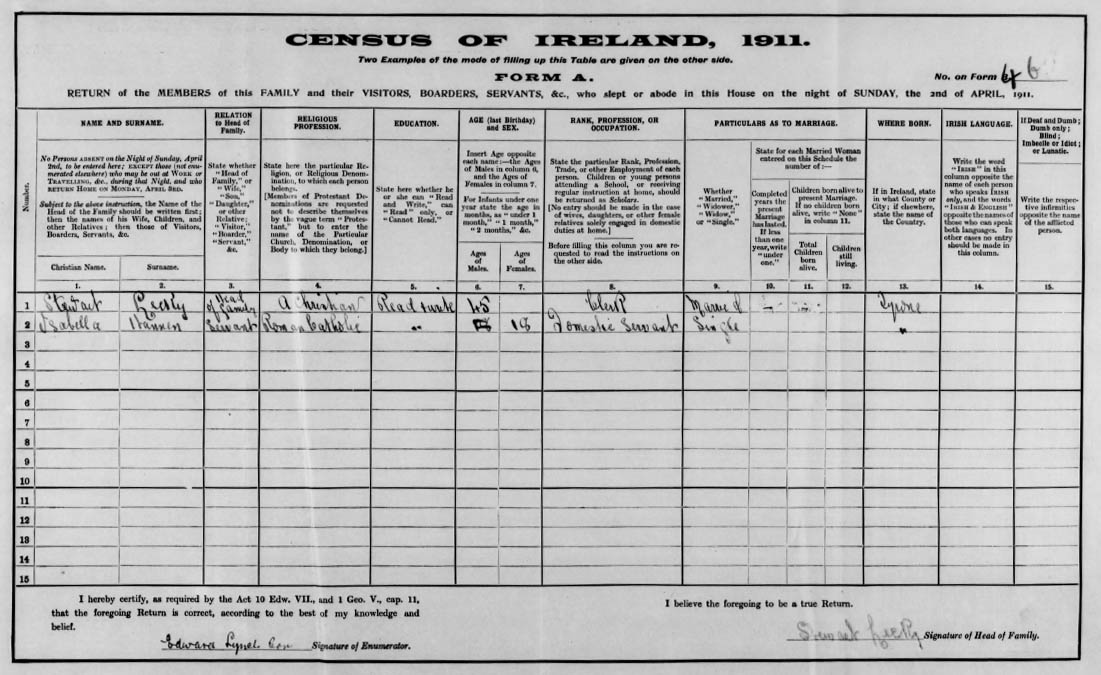 CENSUS OF IRELAND, 1911.
Two Examples of the mode of filling up this Table are given on the other side.
FORM A.
No. on Form B. 6
RETURN of the MEMBERS of this FAMILY and their VISITORS, BOARDERS, SERVANTS, &c., who slept or abode in this House on the night of SUNDAY, the 2nd of APRIL, 1911.
Number.
NAME AND SURNAME.
No Persons ABSENT on the Night of Sunday, April
2nd, to be entered here; EXCEPT those (not enu-
merated elsewhere) who may be out at WORK or
TRAVELLING, &c., during that Night, and who
RETURN HOME ON MONDAY, APRIL 3RD.
Subject to the above instruction, the Name of the
Head of the Family should be written first;
then the names of his Wife, Children, and
other Relatives; then those of Visitors,
Boarders, Servants, &c.
Christian Name.
Surname.
RELATION
to Head of
Family.
State whether
"Head of
Family," or
"Wife,"
"Son,"
"Daughter,"
or other
Relative;
"Visitor,"
"Boarder,"
"Servant,"
&c.
RELIGIOUS
PROFESSION.
State here the particular Re-
ligion, or Religious Denom-
ination, to which each person
belongs.
[Members of Protestant De-
nominations are requested
not to describe themselves
by the vague term "Protes-
tant," but to enter the
name of the Particular
Church, Denomination, or
Body to which they belong.]
EDUCATION.
State here whether he
or she can "Read
and Write," can
"Read" only, or
"Cannot Read."
AGE (last Birthday)
and SEX.
Insert Age opposite
each name:—the Ages
of Males in column 6,
and the Ages of
Females in column 7.
For Infants under one
year state the age in
months, as "under 1
month," "1 month,"
"2 months," &c.
Ages
of
Males.
Ages
of
Females.
RANK, PROFESSION, OR
OCCUPATION.
State the particular Rank, Profession,
Trade, or other Employment of each
person. Children or young persons
attending a School, or receiving
regular instruction at home, should
be returned as Scholars.
[No entry should be made in the case
of wives, daughters, or other female
relatives solely engaged in domestic
duties at home.]
Before filling this column you are re-
quested to read the instructions on
the other side.
PARTICULARS AS TO MARRIAGE.
Whether
"Married,"
"Widower,"
"Widow,"
or "Single."
State for each Married Woman
entered on this Schedule the
number of:—
Completed
years the
present
Marriage
has lasted.
If less
than one
year, write
"under
one."
Children born alive to
present Marriage.
If no children born
alive, write "None"
in column 11.
Total
Children
born
alive.
Children
still
living.
WHERE BORN.
If in Ireland, state
in what County or
City; if elsewhere,
state the name of
the Country.
IRISH LANGUAGE.
Write the word
"IRISH" in this
column opposite the
name of each person
who speaks IRISH
only, and the words
"IRISH & ENGLISH"
opposite the names of
those who can speak
both languages. In
other cases no entry
should be made in
this column.
If Deaf and Dumb;
Dumb only;
Blind;
Imbecile or Idiot;
or Lunatic.
Write the respec-
tive infirmities
opposite the name
of the afflicted
person.
1. 2. 3. 4. 5. 6. 7. 8. 9. 10. 11. 12. 13. 14. 15.
1 Stewart Head of Family A Christian Read & write 45 Clerk Married - - Tyrone
2 Isabella Servant Roman Catholic " 18 Domestic Servant Single "
3
4
5
6
7
8
9
10
11
12
13
14
15
I hereby certify, as required by the Act 10 Edw. VII., and 1 Geo. V., cap. 11,
that the foregoing Return is correct, according to the best of my knowledge and
belief.
Edward Con Signature of Enumerator.
I believe the foregoing to be a true Return.
Stewart Signature of Head of Family.